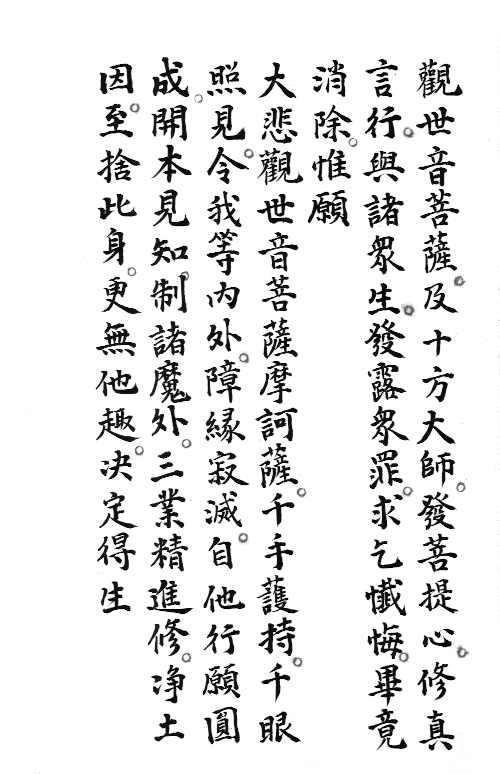 觀世音菩薩。及十方大師。發菩提心。修真
言行。與諸眾生。發露眾罪。求乞懺悔。畢竟
消除。惟願
大悲觀世音菩薩摩訶薩。千手護持。千眼
照見。令我等內外。障緣寂滅。自他行願圓
成。開本見知。制諸魔外。三業精進。修淨土
因。至捨此身。更無他趣。決定得生